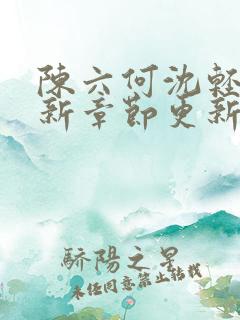 陳六何沈輕
新章節更新
驕陽之星
未經同意禁止轉載